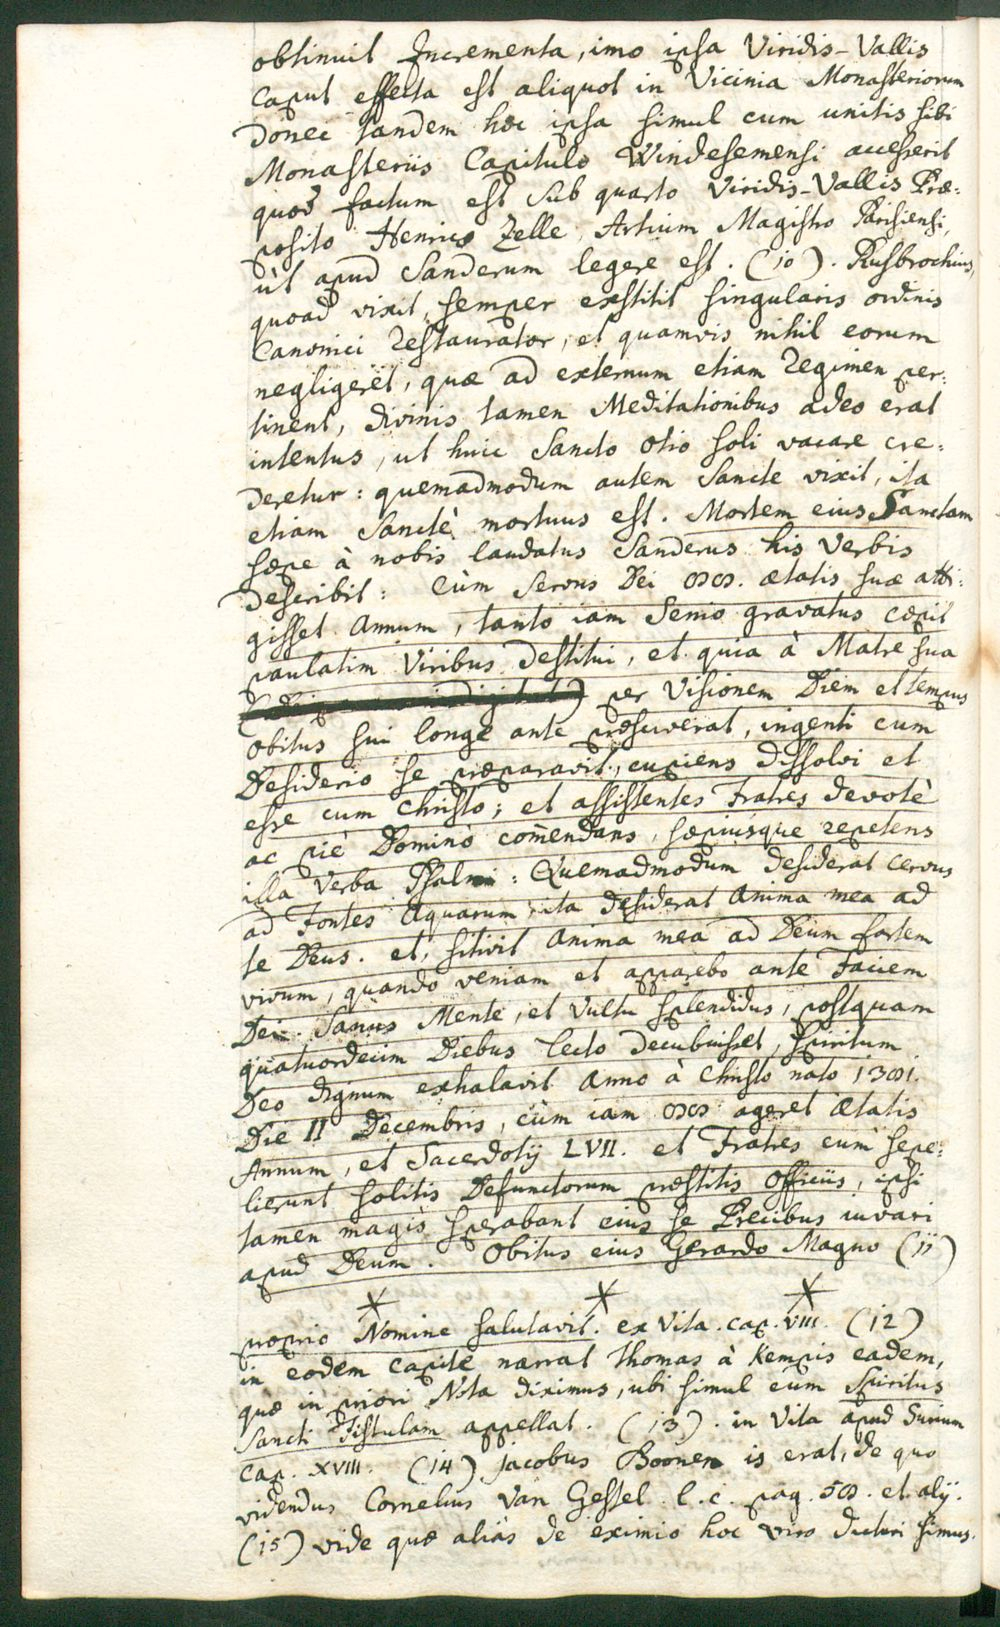 obtinuit Incrementa, imo ipsa Viridis-Vallis
Caput effecta est aliquot in Vicinia Monasteriorum
Donec tandem hæc ipsa simul cum unitis sibi
Monasteriis Capitulo Windesemensi accesserit
quod factum est sub quarto Viridis-Vallis Præ:
posito Henrico Zelle, Artium Magistro Parisiensi,
ùt apud Sanderum legere est. (10). Rusbrochius,
quoad vixit, semper exstitit singularis ordinis
Canonici restaurator, et quamvis nihil eorum
negligeret, quæ ad externum etiam regimen per:
tinent, divinis tamen Meditationibus adeo erat
intentus, ut huic Sancto otio soli vacare cre:
deretur: quemadmodum autem Sancte vixit, ita
etiam Sanctè mortuus est. Mortem eius Sanctam
sæpe à nobis laudatus Sanderus his Verbis
describit: Cùm Servus Dei 88. ætatis suæ atti:
gisset Annum, tanto iam Senio gravatus cæpit
paulatim Viribus destitui, et quia à Matre sua
per Visionem Diem et tempus
obitus sui longè ante præsciverat, ingenti cum
Desiderio se præparavit, cupiens dissolvi et
esse cum Christo; et assistentes Fratres devotè
ac piè Domino com̄endans, sæpiusque repetens
illa Verba Psalmi: Quemadmodum desiderat Cervus
ad Fontes Aquarum ita desiderat Anima mea ad
te Deus. et, sitivit Anima mea ad Deum fortem
vivum, quando veniam et apparebo ante Faciem
Dei. Sanus Mente, et Vultu splendidus, postquam
quatuordecim Diebus lecto decubuisset, spiritum
Deo dignum exhalavit Anno à Christo nato 1381.
Die II Decembris, cùm iam 88 ageret Ætatis
Annum, et Sacerdotij LVII. et Fratres eum sepe:
lierunt solitis Defunctorum præstitis Officiis, ipsi
tamen magis sperabant eius se Precibus iuvari
apud Deum. Obitus eius Gerardo Magno (11)
* * *
proprio Nomine salutavit. ex Vita. cap. VIII. (12)
in eodem capite narrat Thomas à Kempis eadem,
quæ in priori Nota diximus, ubi simul eum Spiritus
Sancti Fistulam appellat. (13). in Vita apud Surium
Cap. XVIII. (14) Jacobus Boonen is erat, de quo
videndus Cornelius Van Gestel. l. c. pag. 58. et alij.
(15) vide quæ aliàs de eximio hoc viro dicturi simus.